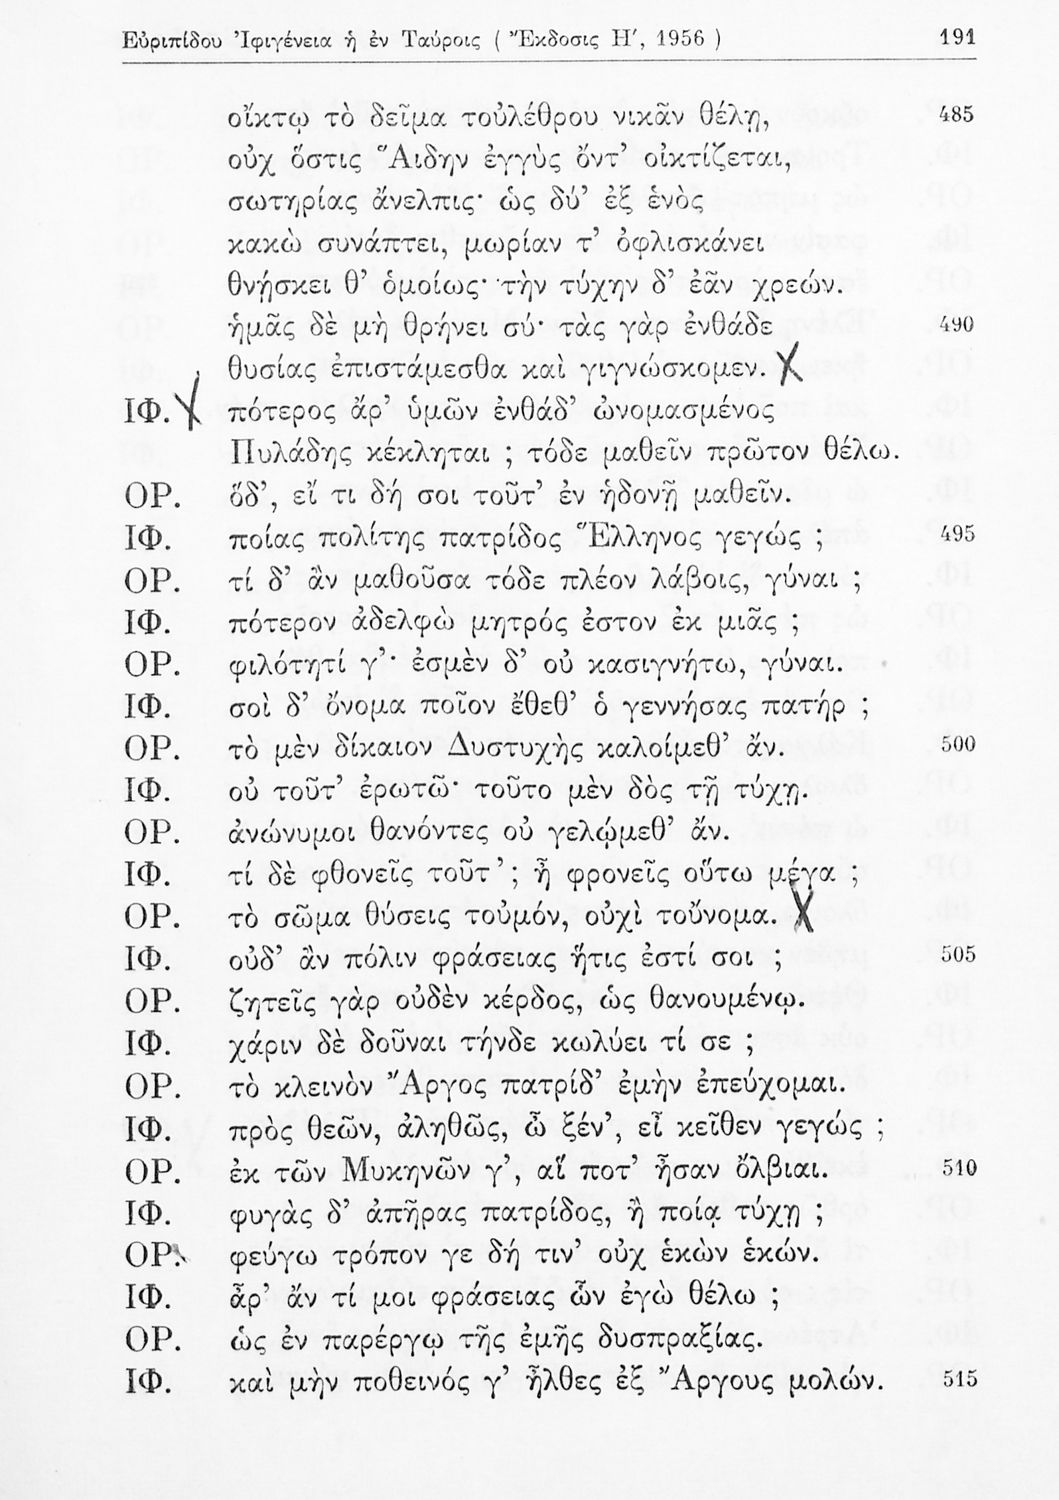 Εὐριπίδου Ἰφιγένεια ἡ ἐν Ταύροις ( Ἔκδοσις Η′, 1956 ) 191
οἴκτῳ τὸ δεῖμα τοὐλέθρου νικᾶν θέλῃ, 485
οὐχ ὅστις Ἅιδην ἐγγὺς ὄντ’ οἰκτίζεται,
σωτηρίας ἄνελπις· ὡς δύ’ ἐξ ἑνὸς
κακὼ συνάπτει, μωρίαν τ’ ὀφλισκάνει
θνῄσκει θ’ ὁμοίως· τὴν τύχην δ’ ἐᾶν χρεών.
ἡμᾶς δὲ μὴ θρήνει σύ· τὰς γὰρ ἐνθάδε 490
θυσίας ἐπιστάμεσθα καὶ γιγνώσκομεν.
ΙΦ. πότερος ἄρ’ ὑμῶν ἐνθάδ’ ὠνομασμένος
Πυλάδης κέκληται ; τόδε μαθεῖν πρῶτον θέλω.
ΟΡ. ὅδ’, εἴ τι δή σοι τοῦτ’ ἐν ἡδονῇ μαθεῖν.
ΙΦ. ποίας πολίτης πατρίδος Ἕλληνος γεγώς ; 495
ΟΡ. τί δ’ ἂν μαθοῦσα τόδε πλέον λάβοις, γύναι ;
ΙΦ. πότερον ἀδελφὼ μητρός ἐστον ἐκ μιᾶς ;
ΟΡ. φιλότητί γ’· ἐσμὲν δ’ οὐ κασιγνήτω, γύναι.
ΙΦ. σοὶ δ’ ὄνομα ποῖον ἔθεθ’ ὁ γεννήσας πατήρ ;
ΟΡ. τὸ μὲν δίκαιον Δυστυχὴς καλοίμεθ’ ἄν. 500
ΙΦ. οὐ τοῦτ’ ἐρωτῶ· τοῦτο μὲν δὸς τῇ τύχῃ.
ΟΡ. ἀνώνυμοι θανόντες οὐ γελῴμεθ’ ἄν.
ΙΦ. τί δὲ φθονεῖς τοῦτ’ ; ἦ φρονεῖς οὕτω μέγα ;
ΟΡ. τὸ σῶμα θύσεις τοὐμόν, οὐχὶ τοὔνομα.
ΙΦ. οὐδ’ ἂν πόλιν φράσειας ἥτις ἐστί σοι ; 505
ΟΡ. ζητεῖς γὰρ οὐδὲν κέρδος, ὡς θανουμένῳ.
ΙΦ. χάριν δὲ δοῦναι τήνδε κωλύει τί σε ;
ΟΡ. τὸ κλεινὸν Ἄργος πατρίδ’ ἐμὴν ἐπεύχομαι.
ΙΦ. πρὸς θεῶν, ἀληθῶς, ὦ ξέν’, εἶ κεῖθεν γεγώς ;
ΟΡ. ἐκ τῶν Μυκηνῶν γ’, αἵ ποτ’ ἦσαν ὄλβιαι. 510
ΙΦ. φυγὰς δ’ ἀπῆρας πατρίδος, ἢ ποίᾳ τύχῃ ;
ΟΡ. φεύγω τρόπον γε δή τιν’ οὐχ ἑκὼν ἑκών.
ΙΦ. ἆρ’ ἄν τί μοι φράσειας ὧν ἐγὼ θέλω ;
ΟΡ. ὡς ἐν παρέργῳ τῆς ἐμῆς δυσπραξίας.
ΙΦ. καὶ μὴν ποθεινός γ’ ἦλθες ἐξ Ἄργους μολών. 515